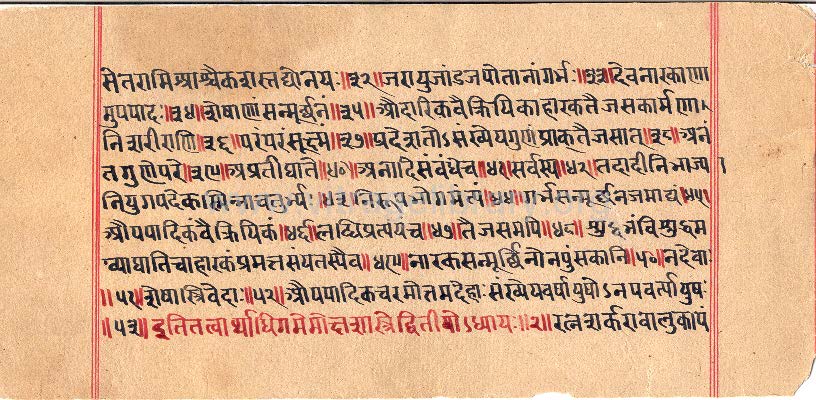 सेतरामिश्राश्चैकशस्तद्योनयः॥३२॥जरायुजांडजपोतानांगर्भः॥३३॥देवनारकाणा
मुपपादः॥३४॥शेषाणांसन्मूर्छनं॥३५॥औदारिकवैक्रियिकाहारकतैजसकार्मणा
निशरीराणि॥३६॥परंपरंसूक्ष्मं॥३७॥प्रदेशतोऽसंख्येयगुणंप्राकतैजसात्॥३८॥अनं
तगुणेपरे॥३९॥अप्रतीघाते॥४०॥अनादिसंबंधेच॥४१॥सर्वस्य॥४२॥तदादीनिभाज्या
नियुगपदेकस्मिन्नाचतुर्भ्यः॥४३॥निरुपभोगमंत्यं॥४४॥गर्भसन्मूर्छनजमाद्यं॥४५॥
औपपादिकंवैक्रियिकं॥४६॥लब्धिप्रत्ययंच॥४७॥तैजसमपि॥४८॥शुभंविशुद्धम
व्याघातिचाहारकंप्रमत्तसंयतस्यैव॥४९॥नारकसन्मूर्छिनोनपुंसकानि॥५०॥नदेवाः
॥५१॥शेषास्त्रिवेदाः॥५२॥औपपादिकचरमोत्तमदेहाःसंख्येयवर्षायुषोऽनपवर्त्यायुषः
॥५३॥इतितत्वार्थाधिगमेमोक्षशास्त्रेद्वितीयोऽध्यायः॥२॥रत्नशर्करावालुकापं